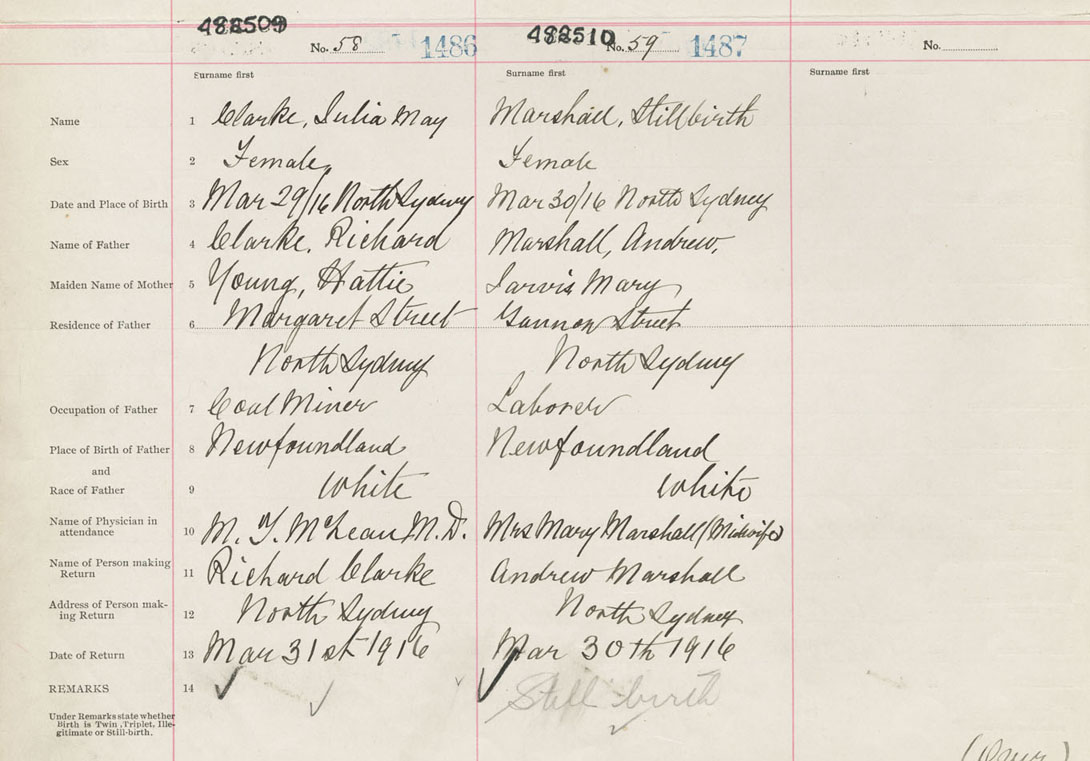 482509
482510
No. 58 1486
No. 59 1487
No.
Surname first
Surname first
Surname first
Name 1 Clarke, Julia May Marshall, Stillbirth
Sex 2 Female Female
Date and Place of Birth 3 Mar 29/16 North Sydney Mar 30/16 North Sydney
Name of Father 4 Clarke, Richard Marshall, Andrew,
Maiden Name of Mother 5 Young, Hattie Jarvis Mary
Residence of Father 6 Margaret Street Gannon Street
North Sydney North Sydney
Occupation of Father 7 Coal Miner Laborer
Place of Birth of Father 8 Newfoundland Newfoundland
and
Race of Father 9 White White
Name of Physician in
attendance 10 M. T. McLean M.D. Mrs Mary Marshall (Midwife)
Name of Person making
Return 11 Richard Clarke Andrew Marshall
Address of Person mak-
ing Return 12 North Sydney North Sydney
Date of Return 13 Mar 31st 1916 Mar 30th 1916
REMARKS 14 Still birth
Under Remarks state whether
Birth is Twin, Triplet, Ille-
gitimate or Still-birth.